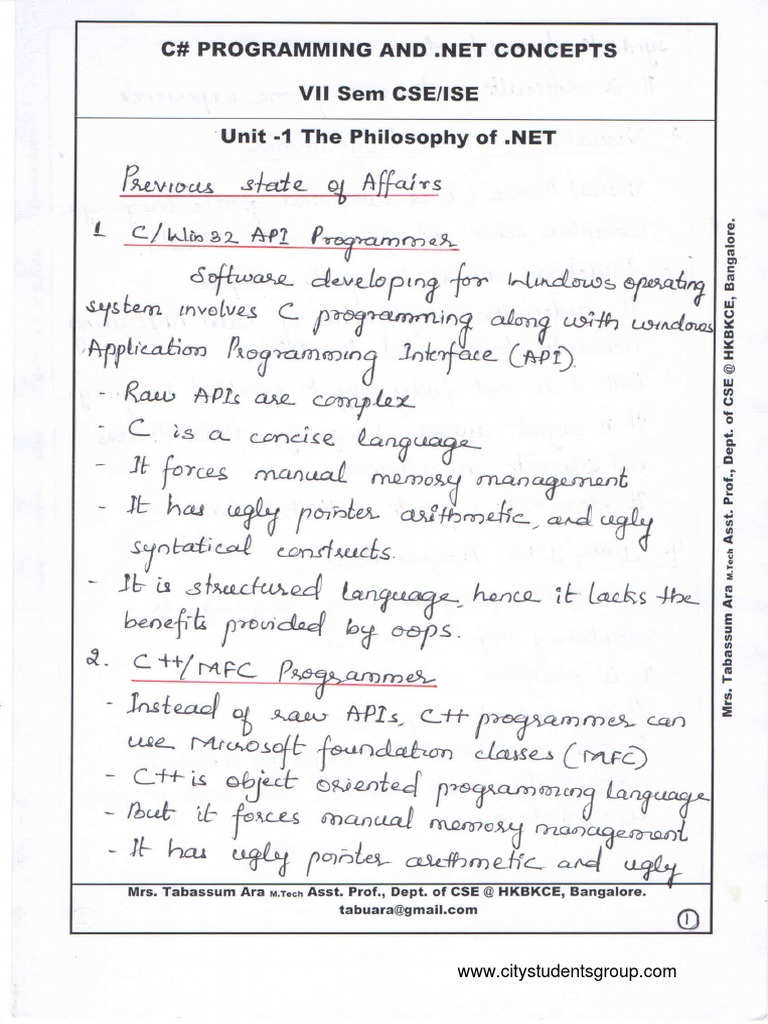 C# PROGRAMMING AND .NET CONCEPTS
VII Sem CSE/ISE
Unit -1 The Philosophy of .NET
Previous state of Affairs
1 C/Win32 API Programmer
Software developing for Windows operating
system involves C programming along with windows
Application Programming Interface (API).
- Raw APIs are complex
- C is a concise language
- It forces manual memory management
- It has ugly pointer arithmetic, and ugly
syntatical constructs.
- It is structured language, hence it lacks the
benefits provided by oops.
2. C++/MFC Programmer
- Instead of raw APIs, C++ programmer can
use Microsoft foundation classes (MFC)
- C++ is object oriented programming language
- But it forces manual memory management
- It has ugly pointer arethmetic and ugly
Mrs. Tabassum Ara M.Tech Asst. Prof., Dept. of CSE @ HKBKCE, Bangalore.
tabuara@gmail.com
1
Mrs. Tabassum Ara M.Tech Asst. Prof., Dept. of CSE @ HKBKCE, Bangalore.
www.citystudentsgroup.com